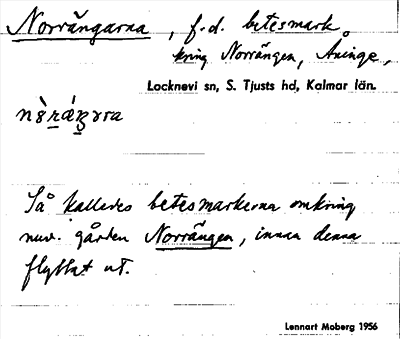 Norrängarna, f.d. betesmark
kring Norrängen, Åninge,
Locknevi sn, S. Tjusts hd, Kalmar län.
Så kallades betesmarkerna omkring
nuv. gården Norrängen, innan denna
flyttat ut.
Lennart Moberg 1956